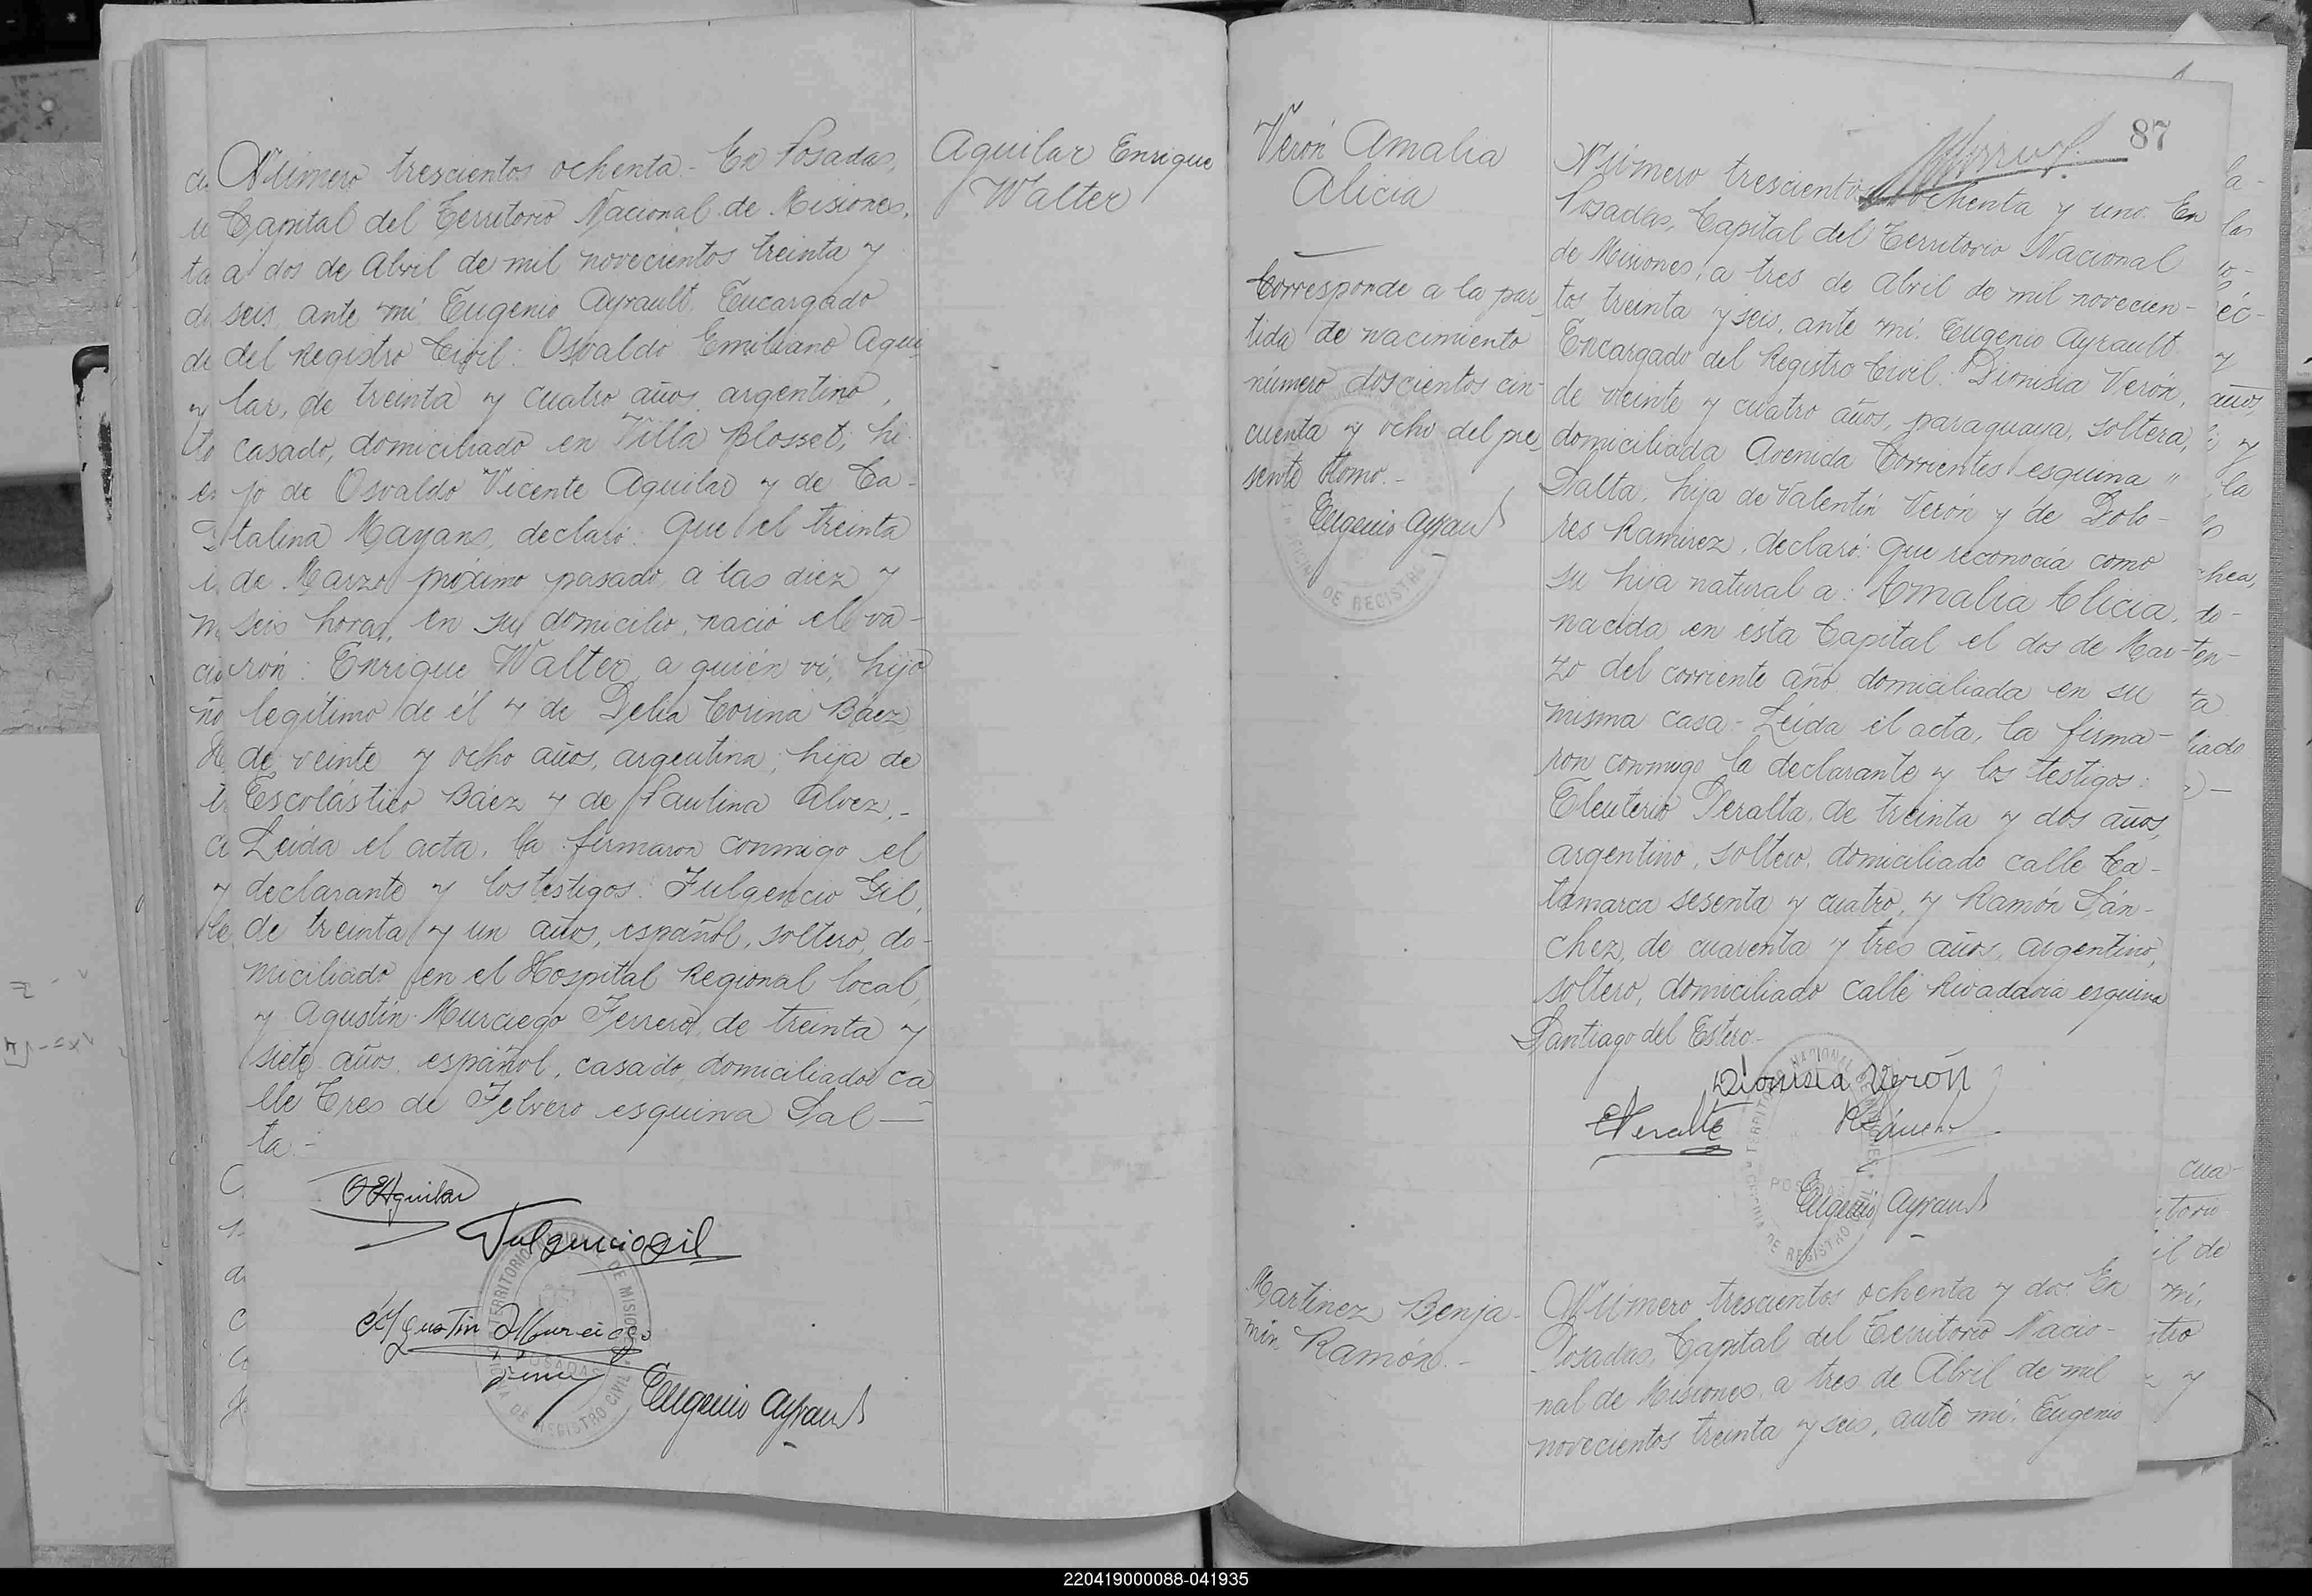 Número trescientos ochenta.- En Posadas,
Capital del Territorio Nacional de Misiones,
a dos de Abril de mil novecientos treinta y
seis, ante mí Eugenio Ayrault, Encargado
del Registro Civil: Osvaldo Emiliano Agui
lar, de treinta y cuatro años, argentino,
casado, domiciliado en Villa Blosset, hi-
jo de Osvaldo Vicente Aguilar y de Ca-
talina Mayans, declaró: Que el treinta
de Marzo próximo pasado, a las diez y
seis horas, en su domicilio, nació el va-
rón: Enrique Walter, a quién vi, hijo
legítimo de él y de Delia Corina Báez,
de veinte y ocho años, argentina; hija de
Escolástico Báez y de Paulina Alvez.-
Leída el acta, la firmaron conmigo el
declarante y los testigos: Fulgencio Gil,
de treinta y un años, español, soltero, do-
miciliado en el Hospital Regional local,
y Agustín Murciego Ferrero, de treinta y
siete años, español, casado, domiciliado ca
lle Tres de Febrero esquina Sal-
ta.-
OEAguilar
Fulgencio Gil
Agustin Murciego
Eugenio Ayrault
TERRITORIO NACIONAL DE MISIONES
POSADAS
OFICINA DE REGISTRO CIVIL
Aguilar Enrique
Walter
Verón Amalia
Alicia
Corresponde a la par
tida de nacimiento
número doscientos cin-
cuenta y ocho del pre
sente tomo.-
Eugenio Ayrault
DE REGISTRO
87
Número trescientos ochenta y uno. En
Posadas, Capital del Territorio Nacional
de Misiones, a tres de Abril de mil novecien-
tos treinta y seis, ante mí, Eugenio Ayrault
Encargado del Registro Civil: Dionisia Verón,
de veinte y cuatro años, paraguaya, soltera,
domiciliada Avenida Corrientes esquina "
Salta, hija de Valentín Verón y de Dolo-
res Ramirez, declaró: Que reconocía como
su hija natural a: Amalia Alicia,
nacida en esta Capital el dos de Mar-
zo del corriente año, domiciliada en su
misma casa.- Leída el acta, la firma-
ron conmigo la declarante y los testigos:
Eleuterio Peralta, de treinta y dos años,
argentino, soltero, domiciliado calle Ca-
tamarca sesenta y cuatro, y Ramón Sán-
chez, de cuarenta y tres años, argentino,
soltero, domiciliado calle Rivadavia esquina
Santiago del Estero.-
Dionisia Verón
EPeralta
RSánchez
Eugenio Ayrault
TERRITORIO NACIONAL DE MISIONES
POSADAS
OFICINA DE REGISTRO CIVIL
Martinez Benja-
min Ramón.-
Número trescientos ochenta y dos. En
Posadas, Capital del Territorio Nacio-
nal de Misiones, a tres de Abril de mil
novecientos treinta y seis, ante mí, Eugenio
220419000088-041935